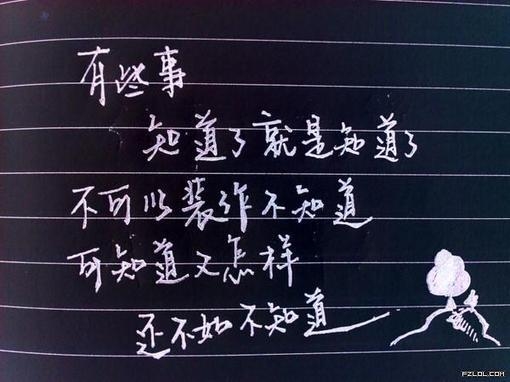 有些事
知道了就是知道了
不可以装作不知道
可知道又怎样
还不如不知道
FZLOL.COM